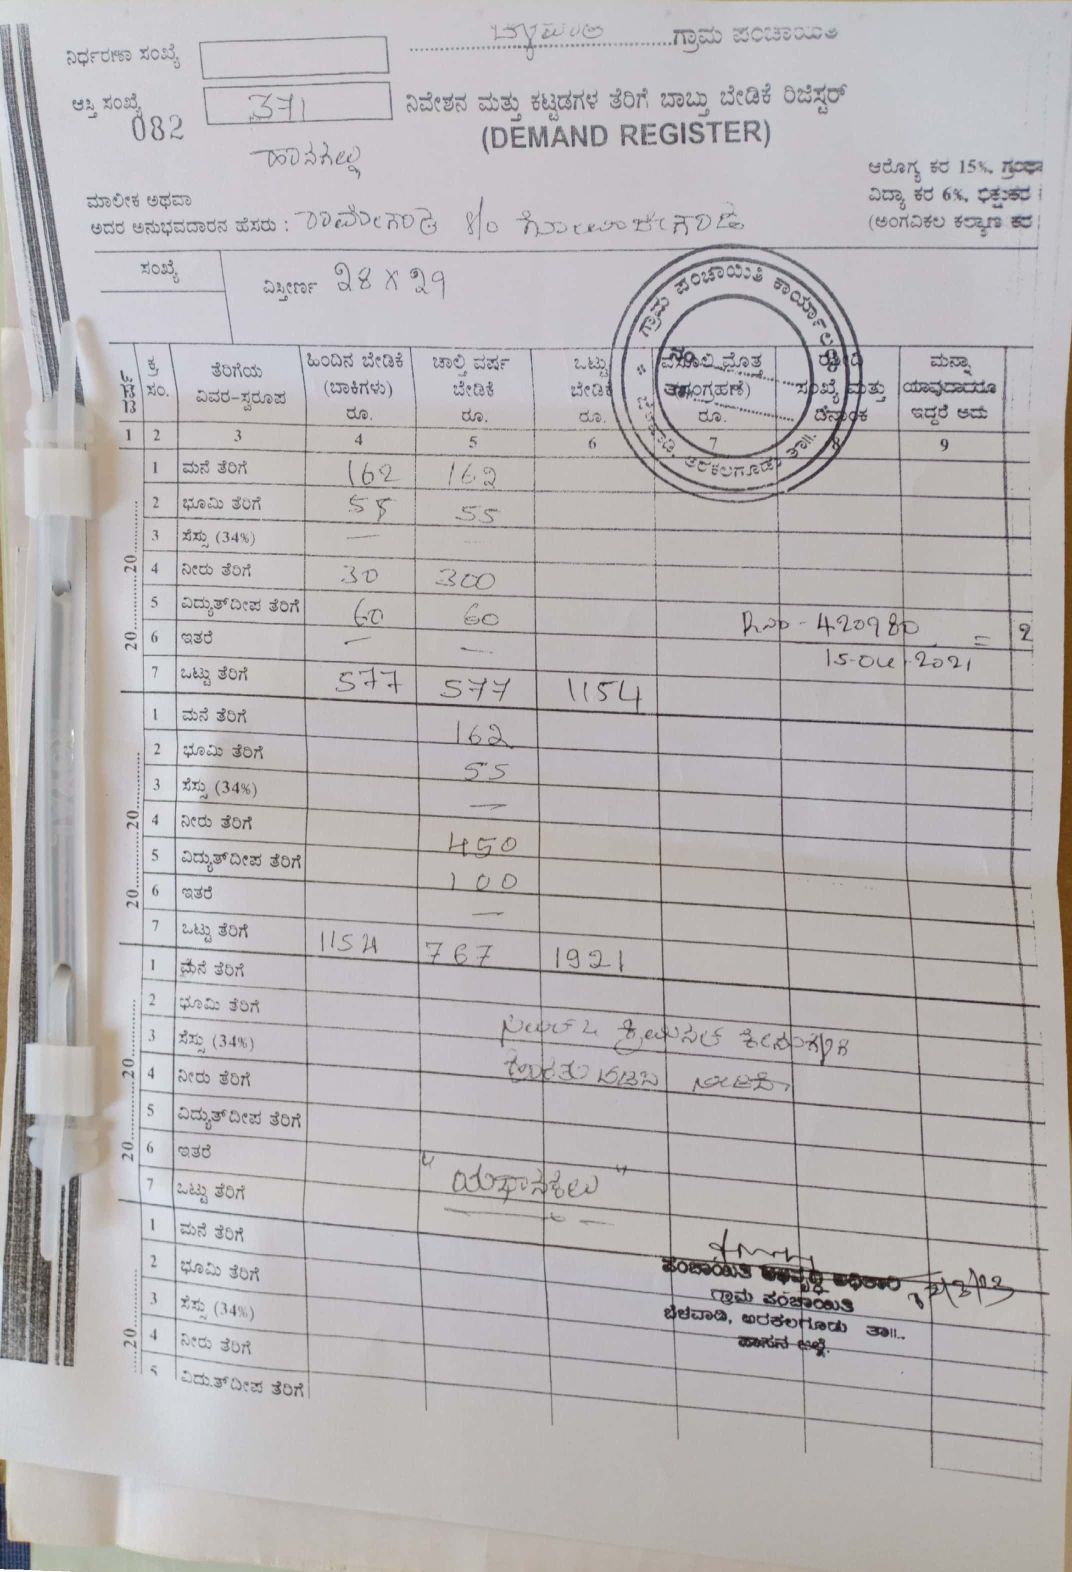 ಗ್ರಾಮ ಪಂಚಾಯಿತಿ
ನಿರ್ಧರಣಾ ಸಂಖ್ಯೆ
ಆಸ್ತಿ ಸಂಖ್ಯೆ 371
082
ನಿವೇಶನ ಮತ್ತು ಕಟ್ಟಡಗಳ ತೆರಿಗೆ ಬಾಬ್ತು ಬೇಡಿಕೆ ರಿಜಿಸ್ಟರ್
(DEMAND REGISTER)
ಹಾನಗಲ್ಲು
ಆರೋಗ್ಯ ಕರ 15%, ಗ್ರಂಥಾ
ವಿದ್ಯಾ ಕರ 6%, ಭಿಕ್ಷುಕರ
(ಅಂಗವಿಕಲ ಕಲ್ಯಾಣ ಕರ
ಮಾಲೀಕ ಅಥವಾ
ಅದರ ಅನುಭವದಾರನ ಹೆಸರು : ರಾಮೇಗೌಡ S/o
ಸಂಖ್ಯೆ
ವಿಸ್ತೀರ್ಣ 28 X 29
ಗ್ರಾಮ ಪಂಚಾಯಿತಿ ಕಾರ್ಯಾಲಯ
ಬೆಳವಾಡಿ, ಅರಕಲಗೂಡು ತಾ||.
ನಂ.
ಕ್ರ ಸಂ. ತೆರಿಗೆಯ ವಿವರ-ಸ್ವರೂಪ ಹಿಂದಿನ ಬೇಡಿಕೆ (ಬಾಕಿಗಳು) ರೂ. ಚಾಲ್ತಿ ವರ್ಷ ಬೇಡಿಕೆ ರೂ. ಒಟ್ಟು ಬೇಡಿಕೆ ರೂ. ವಸೂಲಿ ಮೊತ್ತ (ಸಂಗ್ರಹಣೆ) ರೂ. ರಶೀದಿ ಸಂಖ್ಯೆ ಮತ್ತು ದಿನಾಂಕ ಮನ್ನಾ ಯಾವುದಾದರೂ ಇದ್ದರೆ ಅದು
1 2 3 4 5 6 7 8 9
1 ಮನೆ ತೆರಿಗೆ 162 162
2 ಭೂಮಿ ತೆರಿಗೆ 55 55
3 ಸೆಸ್ಸು (34%) — 
4 ನೀರು ತೆರಿಗೆ 30 300
5 ವಿದ್ಯುತ್‌ದೀಪ ತೆರಿಗೆ 60 60 R.no - 420980 = 2
6 ಇತರೆ — — 15-04-2021
20........20
7 ಒಟ್ಟು ತೆರಿಗೆ 577 577 1154
1 ಮನೆ ತೆರಿಗೆ 162
2 ಭೂಮಿ ತೆರಿಗೆ 55
3 ಸೆಸ್ಸು (34%) —
4 ನೀರು ತೆರಿಗೆ 450
5 ವಿದ್ಯುತ್‌ದೀಪ ತೆರಿಗೆ 100
6 ಇತರೆ —
20........20
7 ಒಟ್ಟು ತೆರಿಗೆ 1154 767 1921
1 ಮನೆ ತೆರಿಗೆ
2 ಭೂಮಿ ತೆರಿಗೆ
3 ಸೆಸ್ಸು (34%)
4 ನೀರು ತೆರಿಗೆ
5 ವಿದ್ಯುತ್‌ದೀಪ ತೆರಿಗೆ
6 ಇತರೆ
20........20
7 ಒಟ್ಟು ತೆರಿಗೆ
"ಯಥಾನಕಲು"
1 ಮನೆ ತೆರಿಗೆ
2 ಭೂಮಿ ತೆರಿಗೆ
3 ಸೆಸ್ಸು (34%)
4 ನೀರು ತೆರಿಗೆ
5 ವಿದ್ಯುತ್‌ದೀಪ ತೆರಿಗೆ
20
ಪಂಚಾಯಿತಿ ಅಭಿವೃದ್ಧಿ ಅಧಿಕಾರಿ
ಗ್ರಾಮ ಪಂಚಾಯಿತಿ
ಬೆಳವಾಡಿ, ಅರಕಲಗೂಡು ತಾ||.
ಹಾಸನ ಜಿಲ್ಲೆ.